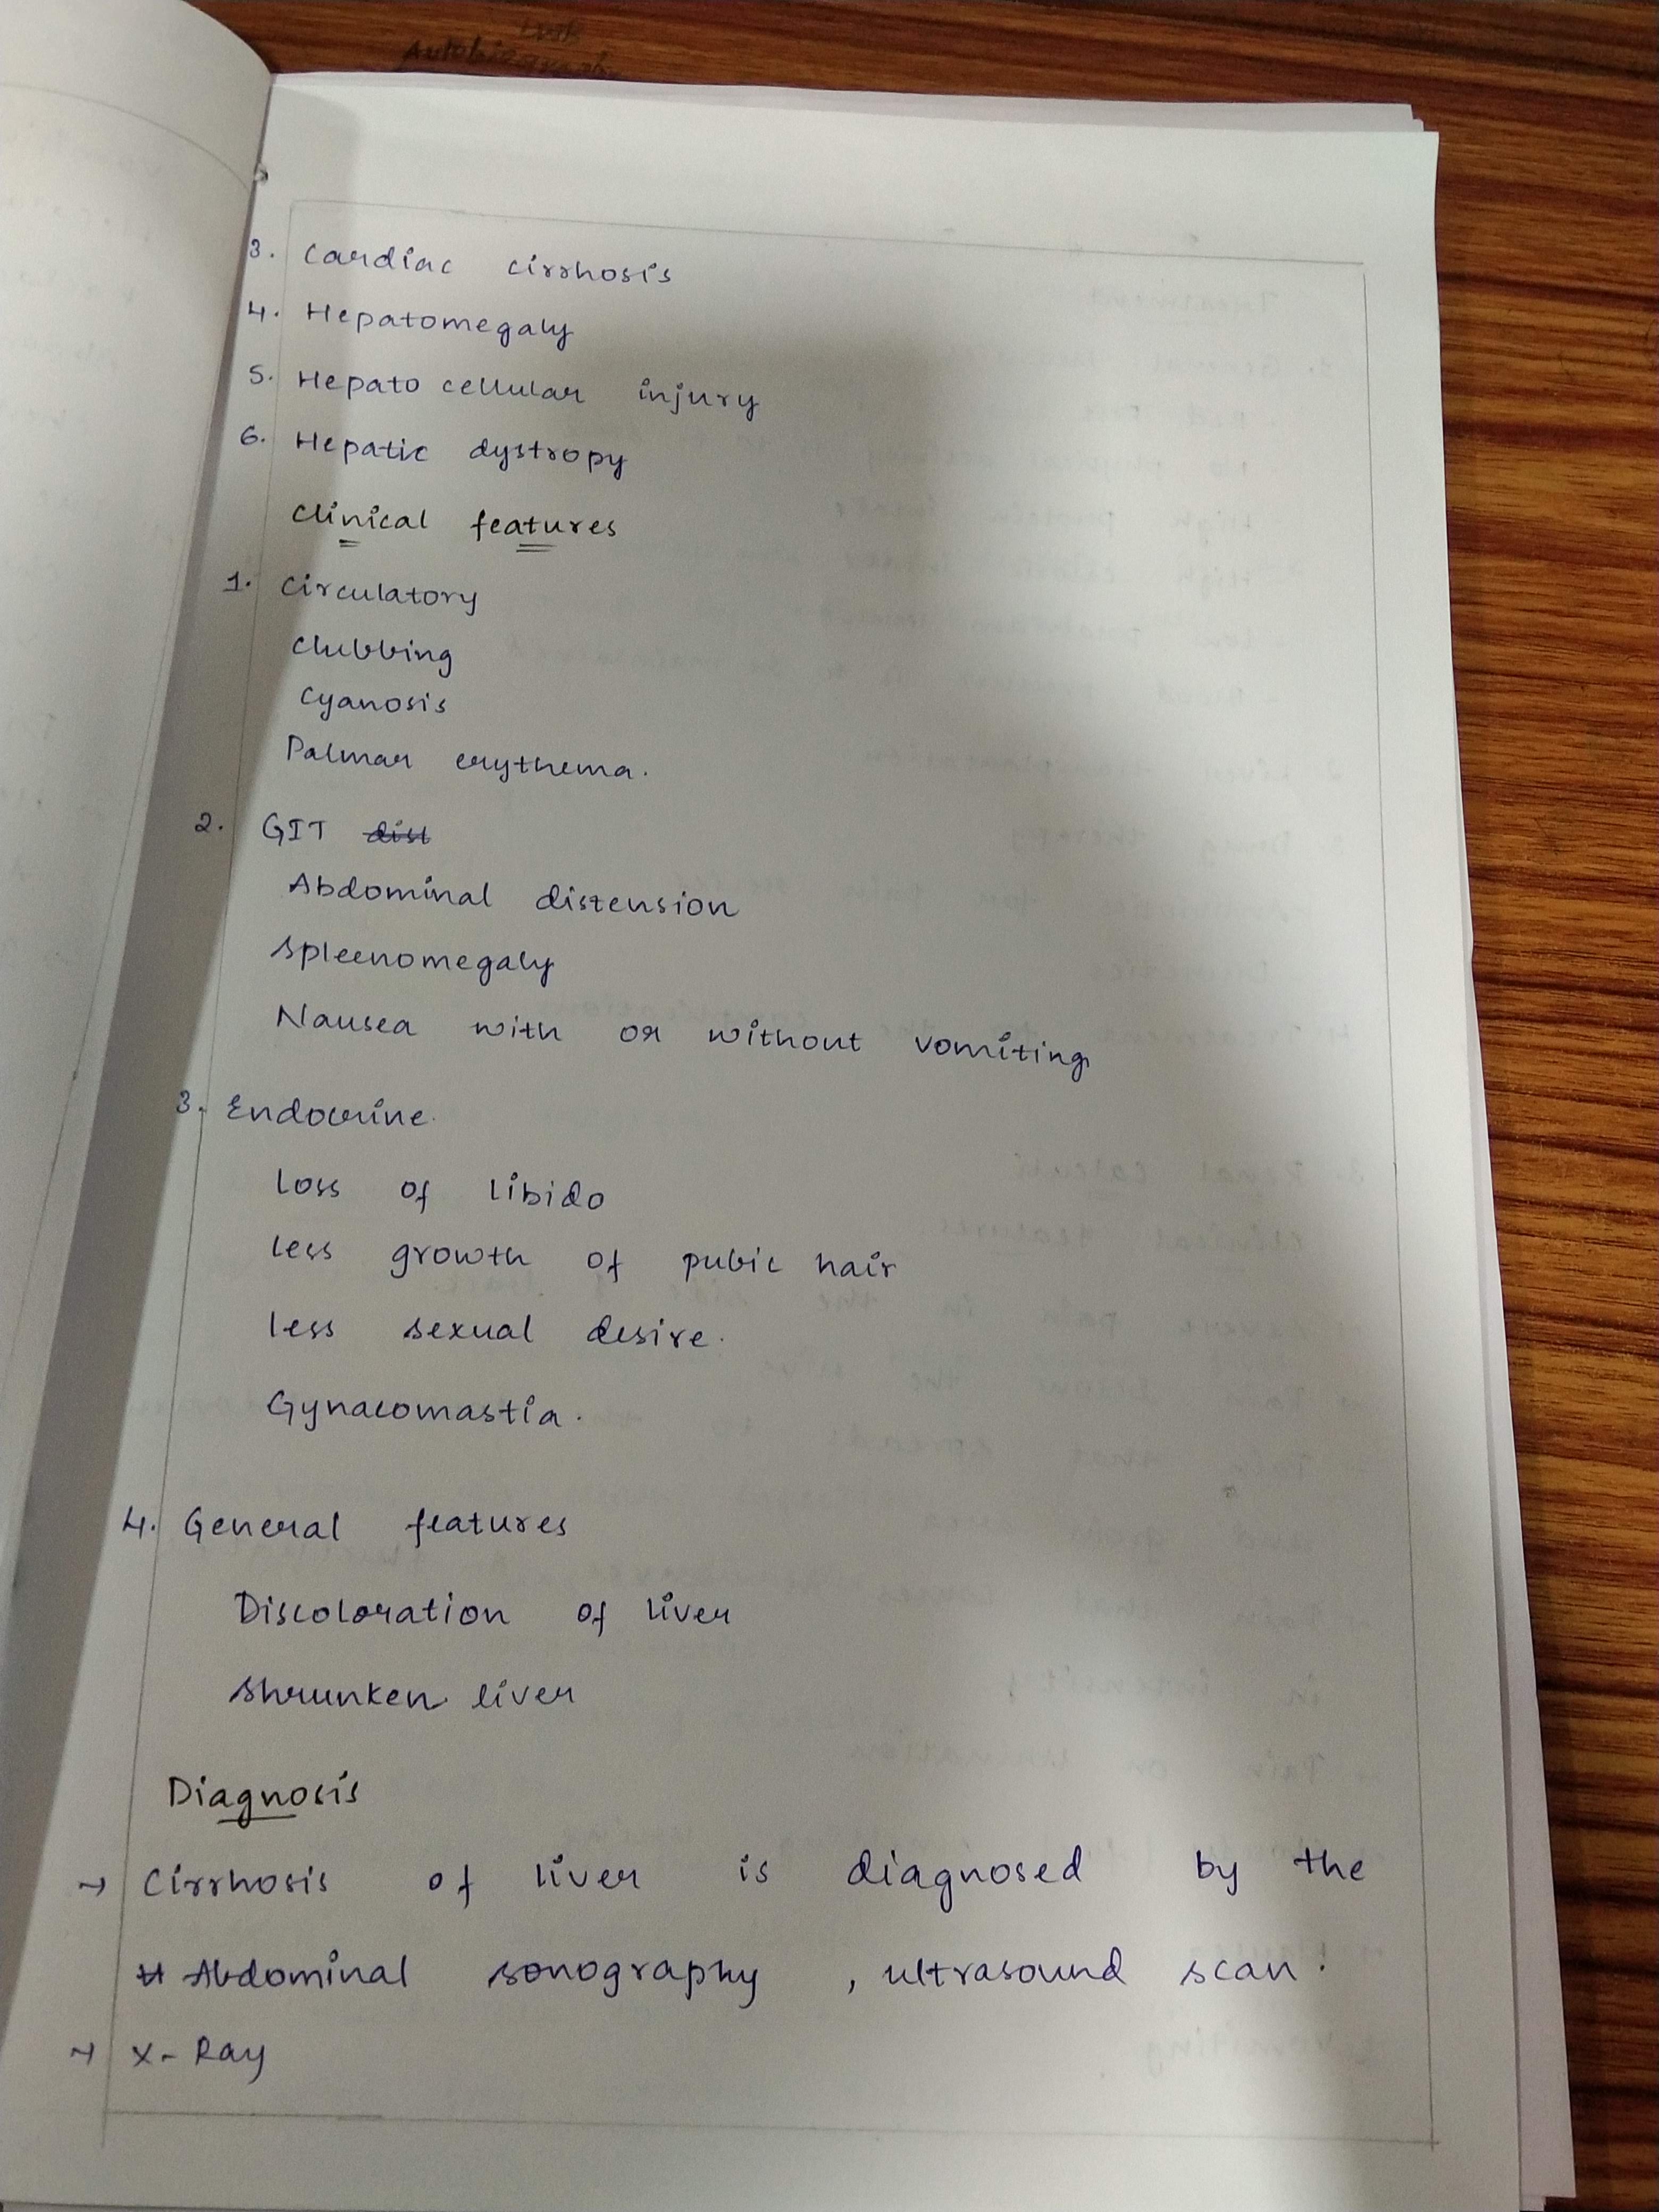 3. Cardiac cirrhosis
4. Hepatomegaly
5. Hepato cellular injury
6. Hepatic dystropy
Clinical features
1. Circulatory
Clubbing
Cyanosis
Palmar erythema.
2. GIT dist
Abdominal distension
Spleenomegaly
Nausea with or without vomiting
3. Endocrine.
Loss of libido
Less growth of pubic hair
Less sexual desire.
Gynacomastia.
4. General features
Discoloration of liver
Shrunken liver
Diagnosis
→ Cirrhosis of liver is diagnosed by the
Abdominal sonography , ultrasound scan.
→ X-Ray